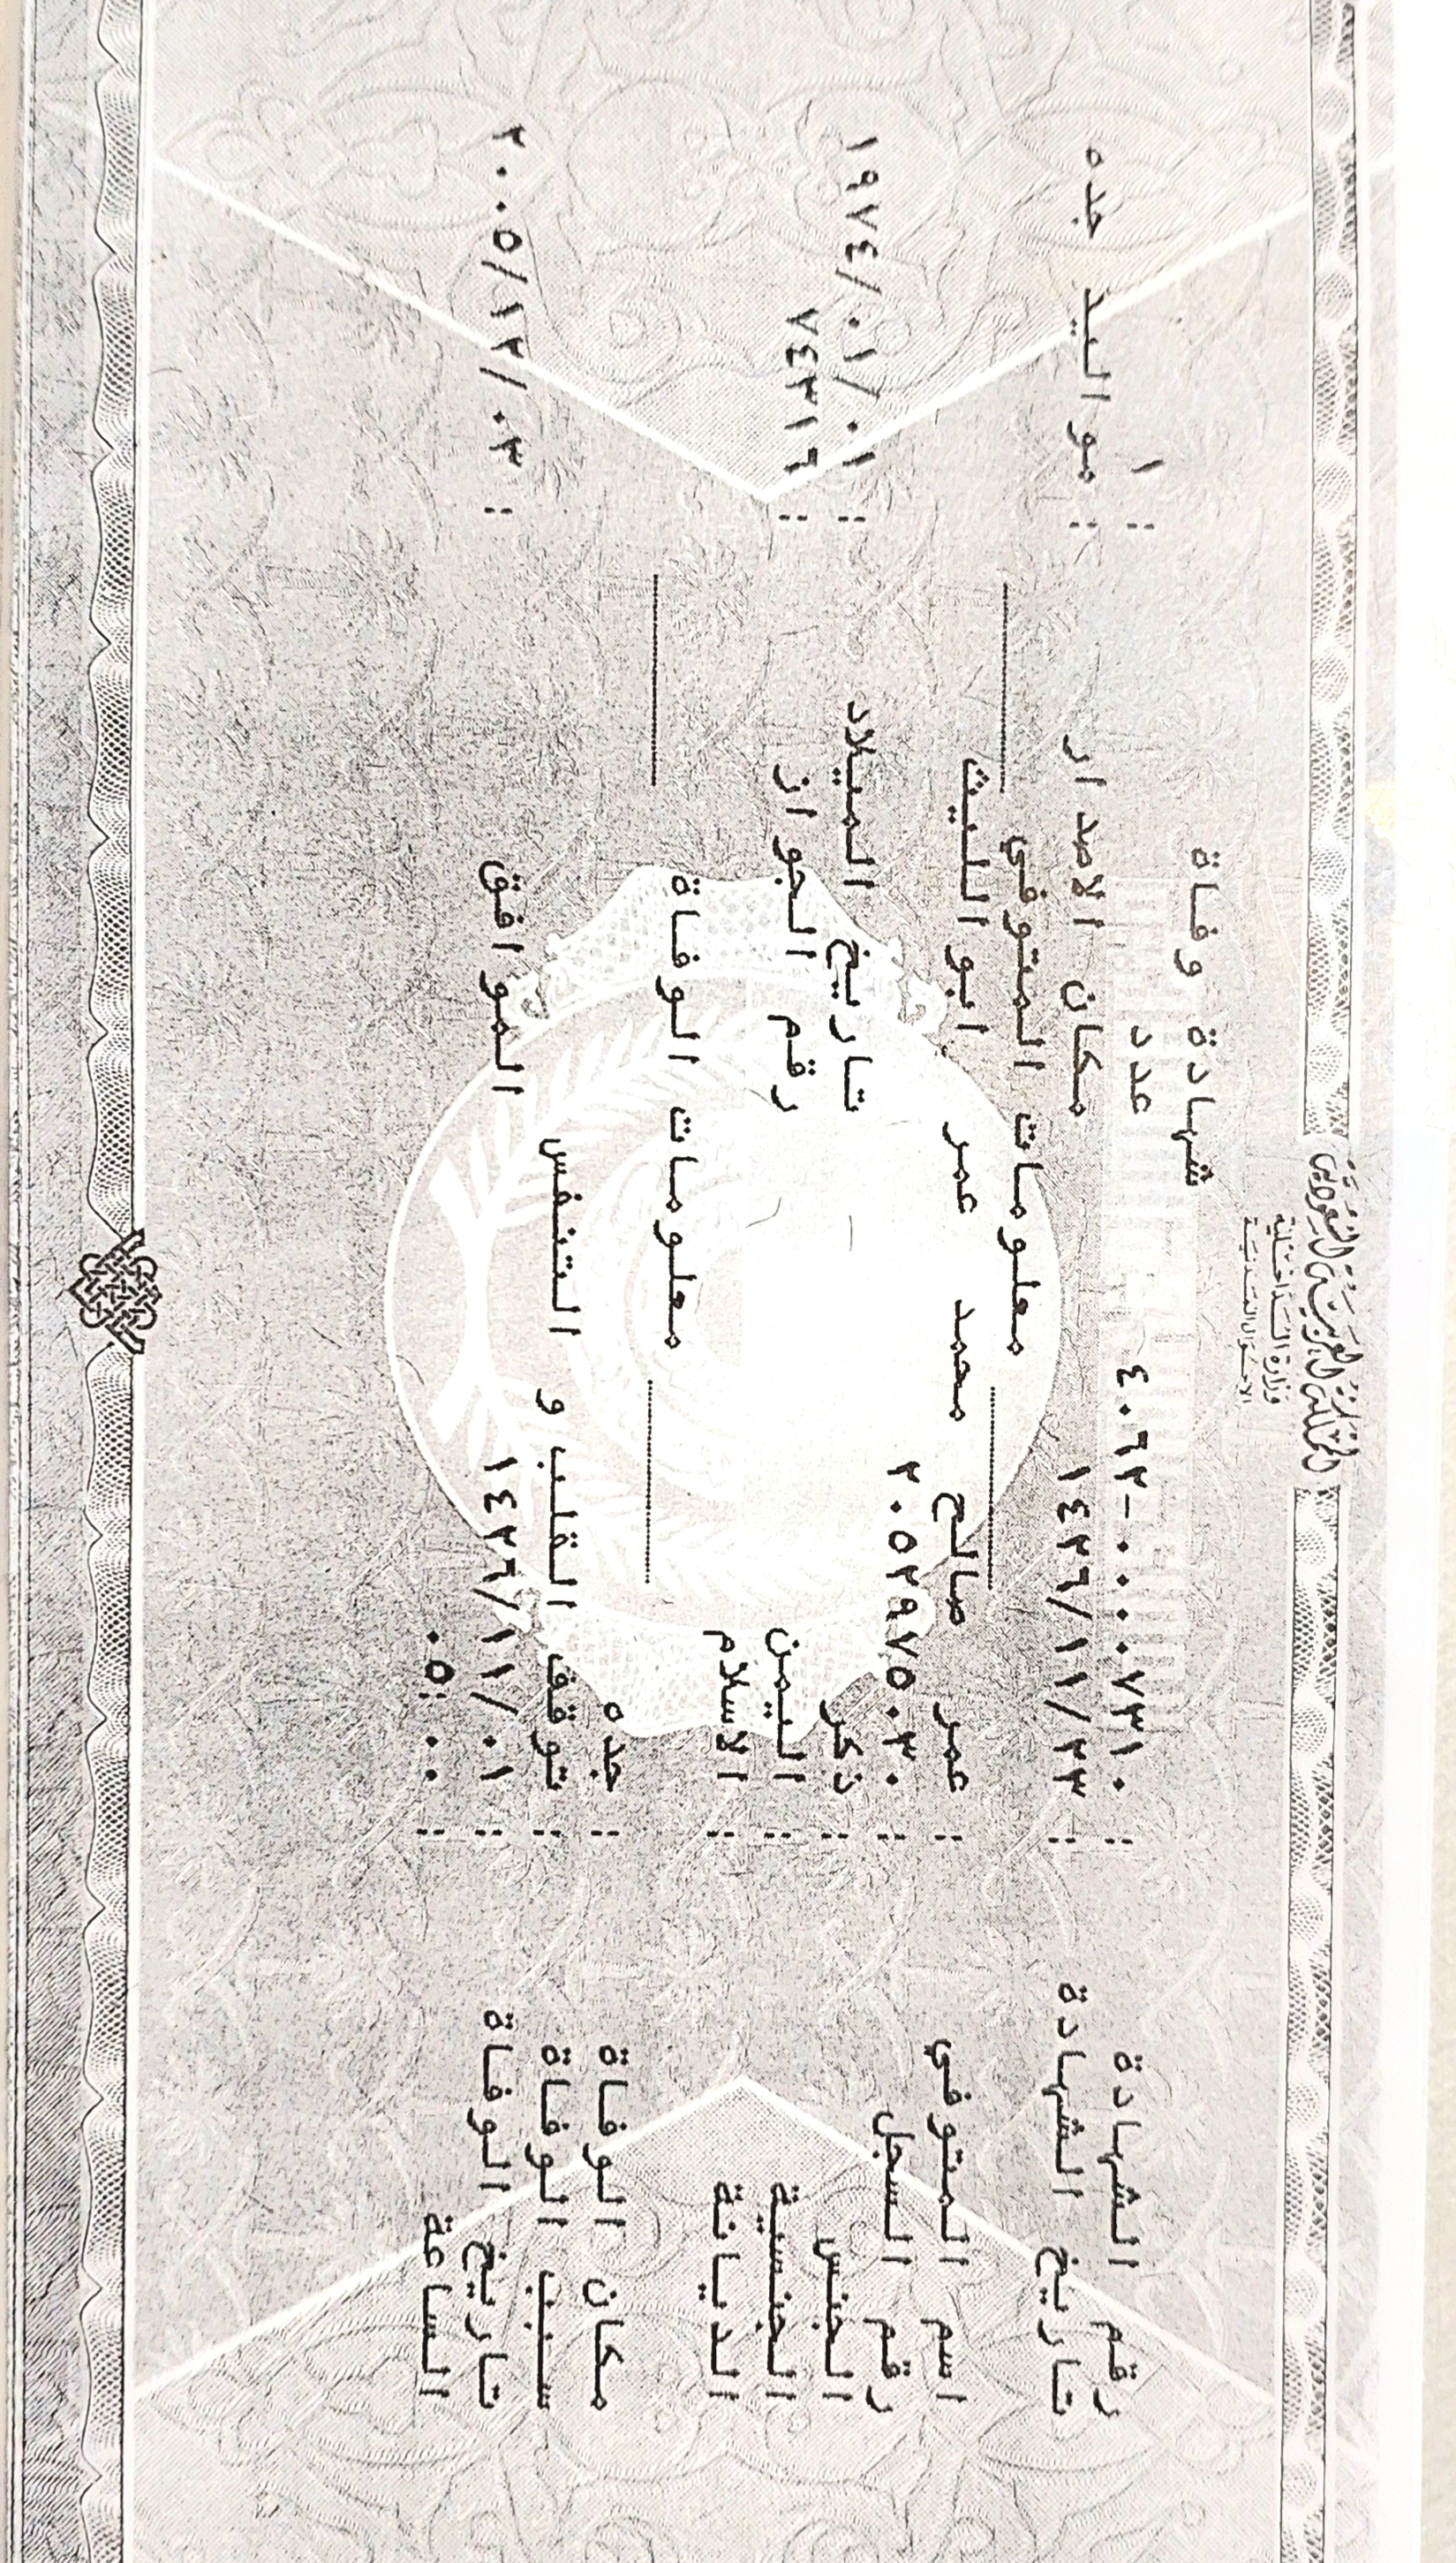 المملكة العربية السعودية
وزارة الداخلية
الأحوال المدنية
شهادة وفاة
رقم الشهادة : ٤٠٦٢-٠٠٠٠٧٣١٠ عدد : ١
تاريخ الشهادة : ١٤٢٦/١١/٢٣ مكان الاصدار : مواليد جده
معلومات المتوفي
اسم المتوفي : عمر صالح محمد عمر ابو الليث
رقم السجل : ٢٠٥٢٩٧٥٠٣٠
الجنس : ذكر تاريخ الميلاد : ١٩٧٤/٠١/٠١
الجنسية : اليمن رقم الجواز : ٧٤٣١٦
الديانة : الاسلام
معلومات الوفاة
مكان الوفاة : جده
سبب الوفاة : توقف القلب و التنفس
تاريخ الوفاة : ١٤٢٦/١١/٠١ الموافق : ٢٠٠٥/١٢/٠٣
الساعة : ٠٥:٠٠